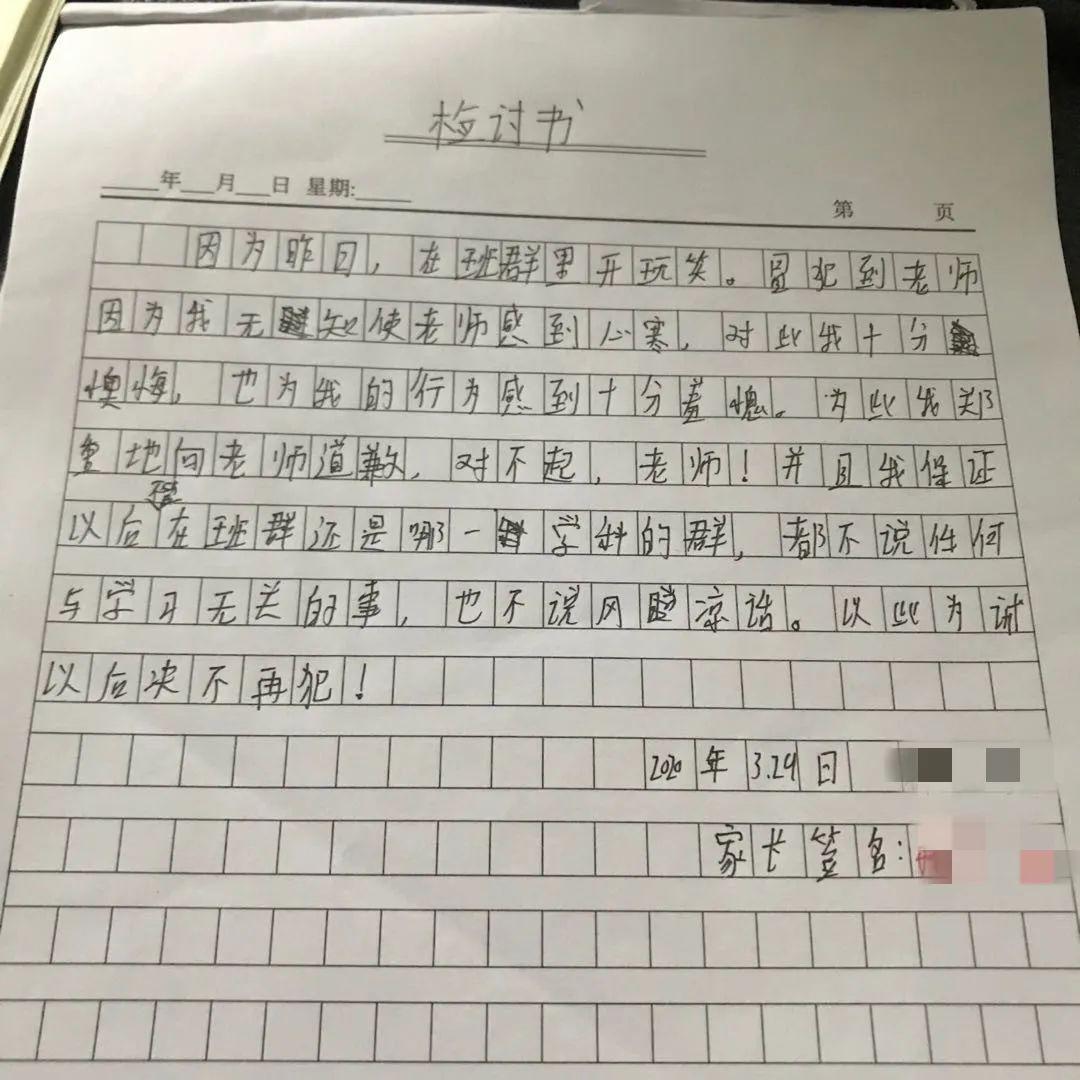 检讨书
年 月 日 星期:
第 页
因为昨日，在班群里开玩笑。冒犯到老师
因为我无知使老师感到心寒，对此我十分
懊悔，也为我的行为感到十分羞愧。为此我郑
重地向老师道歉，对不起，老师！并且我保证
以后不管在班群还是哪一学科的群，都不说任何
与学习无关的事，也不说风凉话。以此为诫
以后决不再犯！
2020年3.29日
家长签名：